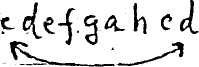 c d e f. g a h c d